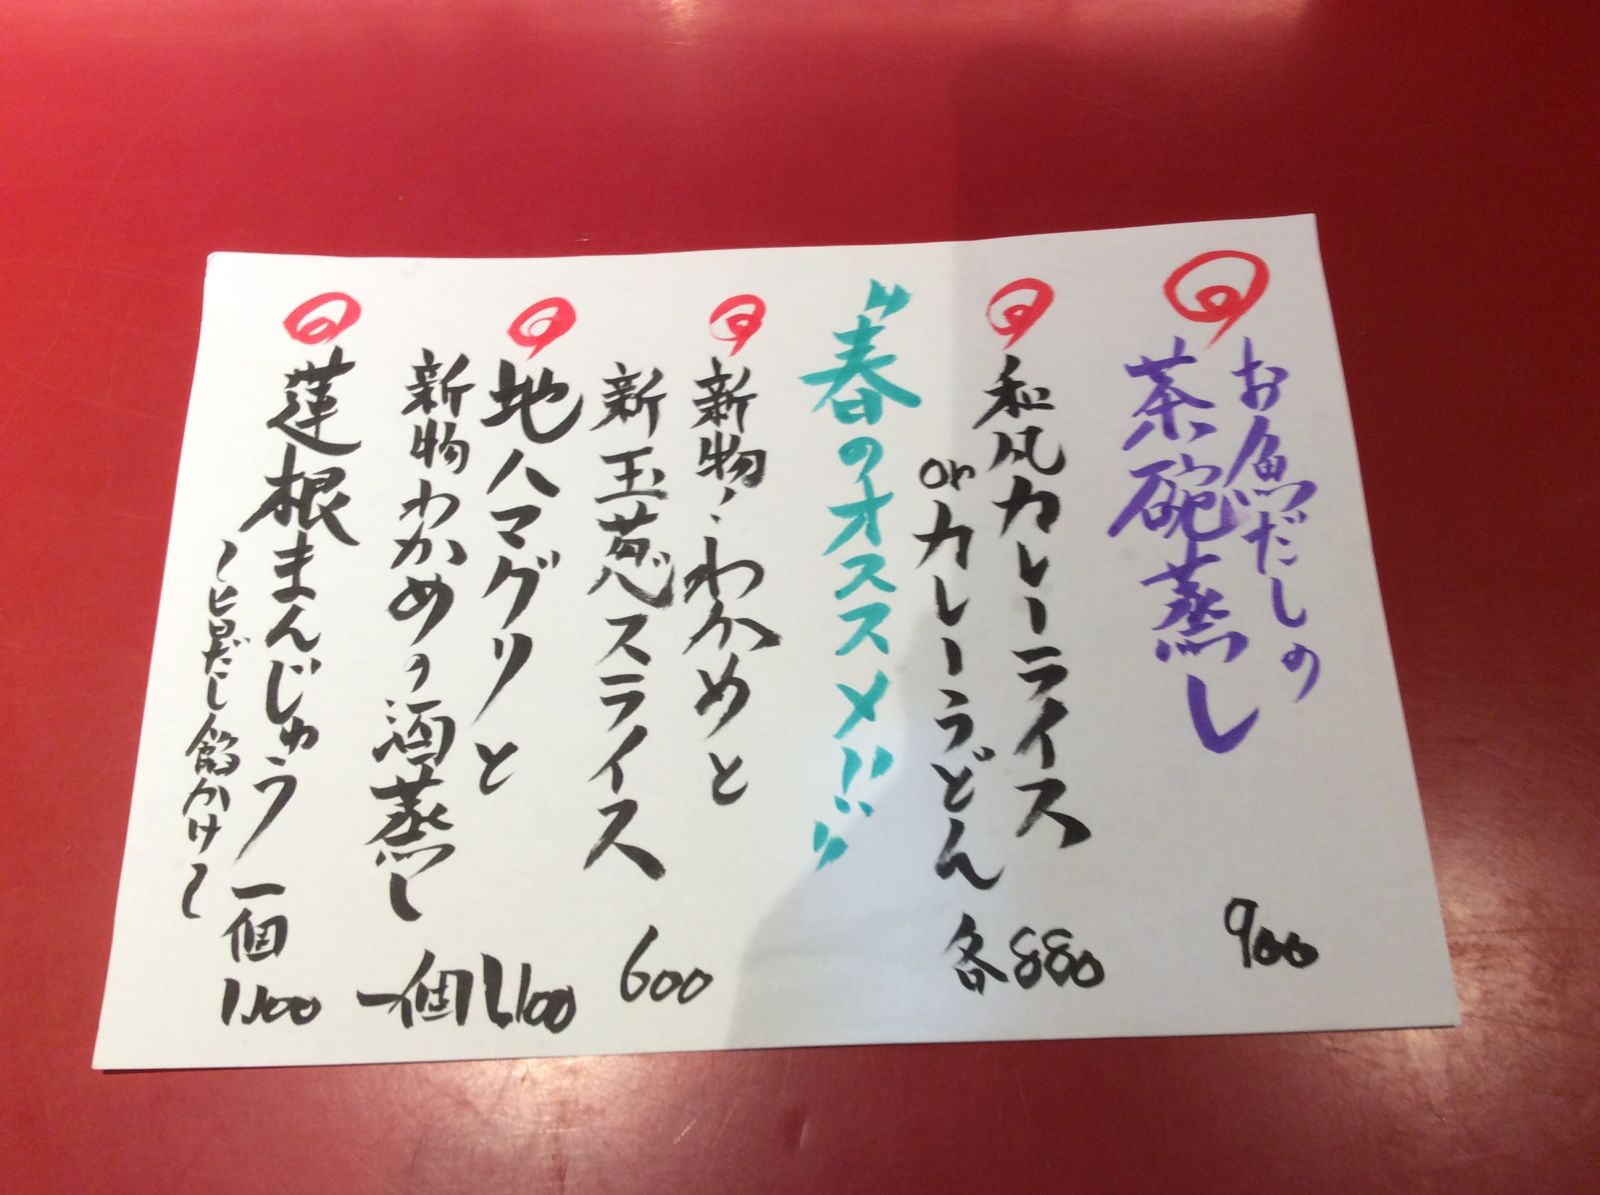 お魚だしの
茶碗蒸し
900
和風カレーライス
orカレーうどん
各880
"春のオススメ!!"
新物!わかめと
新玉葱スライス
600
地ハマグリと
新物わかめの酒蒸し
一個1,100
蓮根まんじゅう 一個
1,100
〜旨だし餡かけ〜